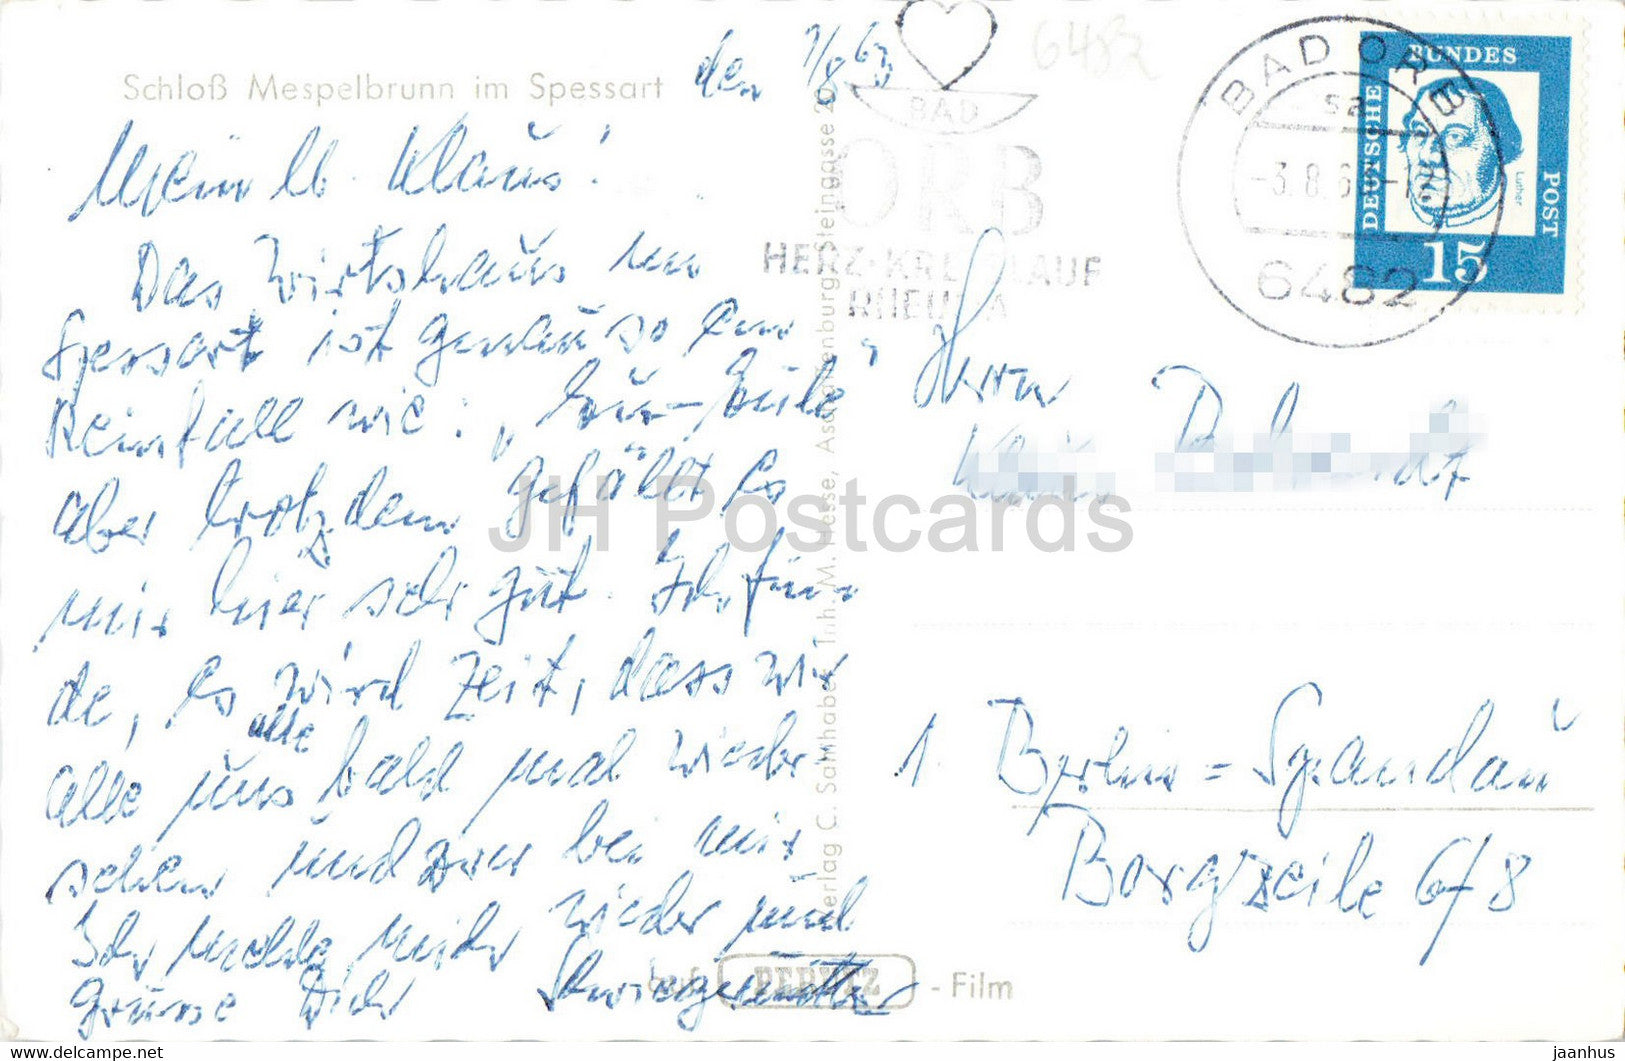 Schloß Mespelbrunn im Spessart
den 1/8 63
Mein lb. Klaus!
Das Wirtshaus im
Spessart ist genauso ein
Reinfall wie:
aber trotzdem gefällt es
mir hier sehr gut. Ich fin
de, es wird Zeit, dass wir
alle
alle uns bald mal wieder
sehen und zwar bei mir
Ich melde mich wieder und
grüsse Dich Schwiegermutter
Verlag C. Samhaber, Inh. M. Hesse, Aschaffenburg, Steingasse 20
auf PERUTZ - Film
6482
BAD
ORB
HERZ·KREISLAUF
RHEUMA
BAD ORB
sa
-3.8.6
6482
DEUTSCHE
BUNDES
POST
Luther
15
Herrn
Klaus
1. Berlin = Spandau
Borgzeile 6/8
JH Postcards
delcampe.net
jaanhus